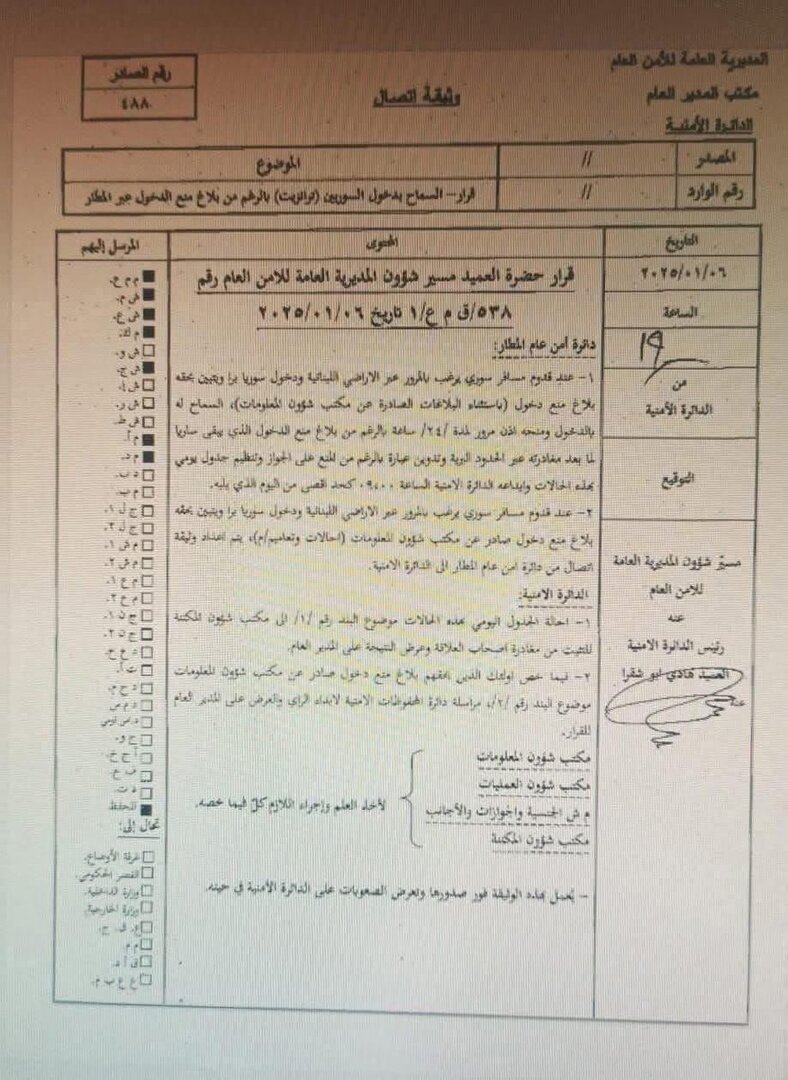 المديرية العامة للأمن العام
مكتب المدير العام
الدائرة الأمنية
وثيقة اتصال
رقم الصادر
٤٨٨
المصدر
//
الموضوع
رقم الوارد
//
قرار– السماح بدخول السوريين (ترانزيت) بالرغم من بلاغ منع الدخول عبر المطار
التاريخ
٢٠٢٥/٠١/٠٦
الساعة
١٩
من
الدائرة الأمنية
التوقيع
مسيّر شؤون المديرية العامة
للامن العام
عنه
رئيس الدائرة الامنية
العميد هادي ابو شقرا
المحتوى
قرار حضرة العميد مسير شؤون المديرية العامة للامن العام رقم
٥٣٨/ق م ع/١ تاريخ ٢٠٢٥/٠١/٠٦
دائرة أمن عام المطار:
١– عند قدوم مسافر سوري يرغب بالمرور عبر الاراضي اللبنانية ودخول سوريا برا ويتبين بحقه
بلاغ منع دخول (باستثناء البلاغات الصادرة عن مكتب شؤون المعلومات)، السماح له
بالدخول ومنحه اذن مرور لمدة /٢٤/ ساعة بالرغم من بلاغ منع الدخول الذي يبقى ساريا
لما بعد مغادرته عبر الحدود البرية وتدوين عبارة بالرغم من المنع على الجواز وتنظيم جدول يومي
بهذه الحالات وايداعه الدائرة الامنية الساعة ٠٩٫٠٠ كحد اقصى من اليوم الذي يليه.
٢– عند قدوم مسافر سوري يرغب بالمرور عبر الاراضي اللبنانية ودخول سوريا برا ويتبين بحقه
بلاغ منع دخول صادر عن مكتب شؤون المعلومات (احالات وتعاميم/م)، يتم اعداد وثيقة
اتصال من دائرة امن عام المطار الى الدائرة الامنية.
الدائرة الامنية:
١– احالة الجدول اليومي بهذه الحالات موضوع البند رقم /١/ الى مكتب شؤون المكننة
للتثبت من مغادرة اصحاب العلاقة وعرض النتيجة على المدير العام.
٢– فيما خص اولئك الذين بحقهم بلاغ منع دخول صادر عن مكتب شؤون المعلومات
موضوع البند رقم /٢/، مراسلة دائرة المحفوظات الامنية لابداء الراي والعرض على المدير العام
للقرار.
مكتب شؤون المعلومات
مكتب شؤون العمليات
م ش الجنسية والجوازات والأجانب
مكتب شؤون المكننة
لأخذ العلم وإجراء اللازم كلّ فيما خصه.
– يُعمل بهذه الوثيقة فور صدورها وتعرض الصعوبات على الدائرة الأمنية في حينه.
المرسل إليهم
ش م.
ش ع.
م ك.
ش و.
ش ج.
ش أ.
ش ر.
ش ط.
م أ.
م د.
د ب.
م ب.
ج ل ١.
ج ل ٢.
م ش ١.
م ش ٢.
م ع ١.
م ع ٢.
ج ن ١.
ج ن ٢.
للحفظ
تحال إلى:
غرفة الأوضاع.
القصر الحكومي.
وزارة الداخلية.
وزارة الخارجية.